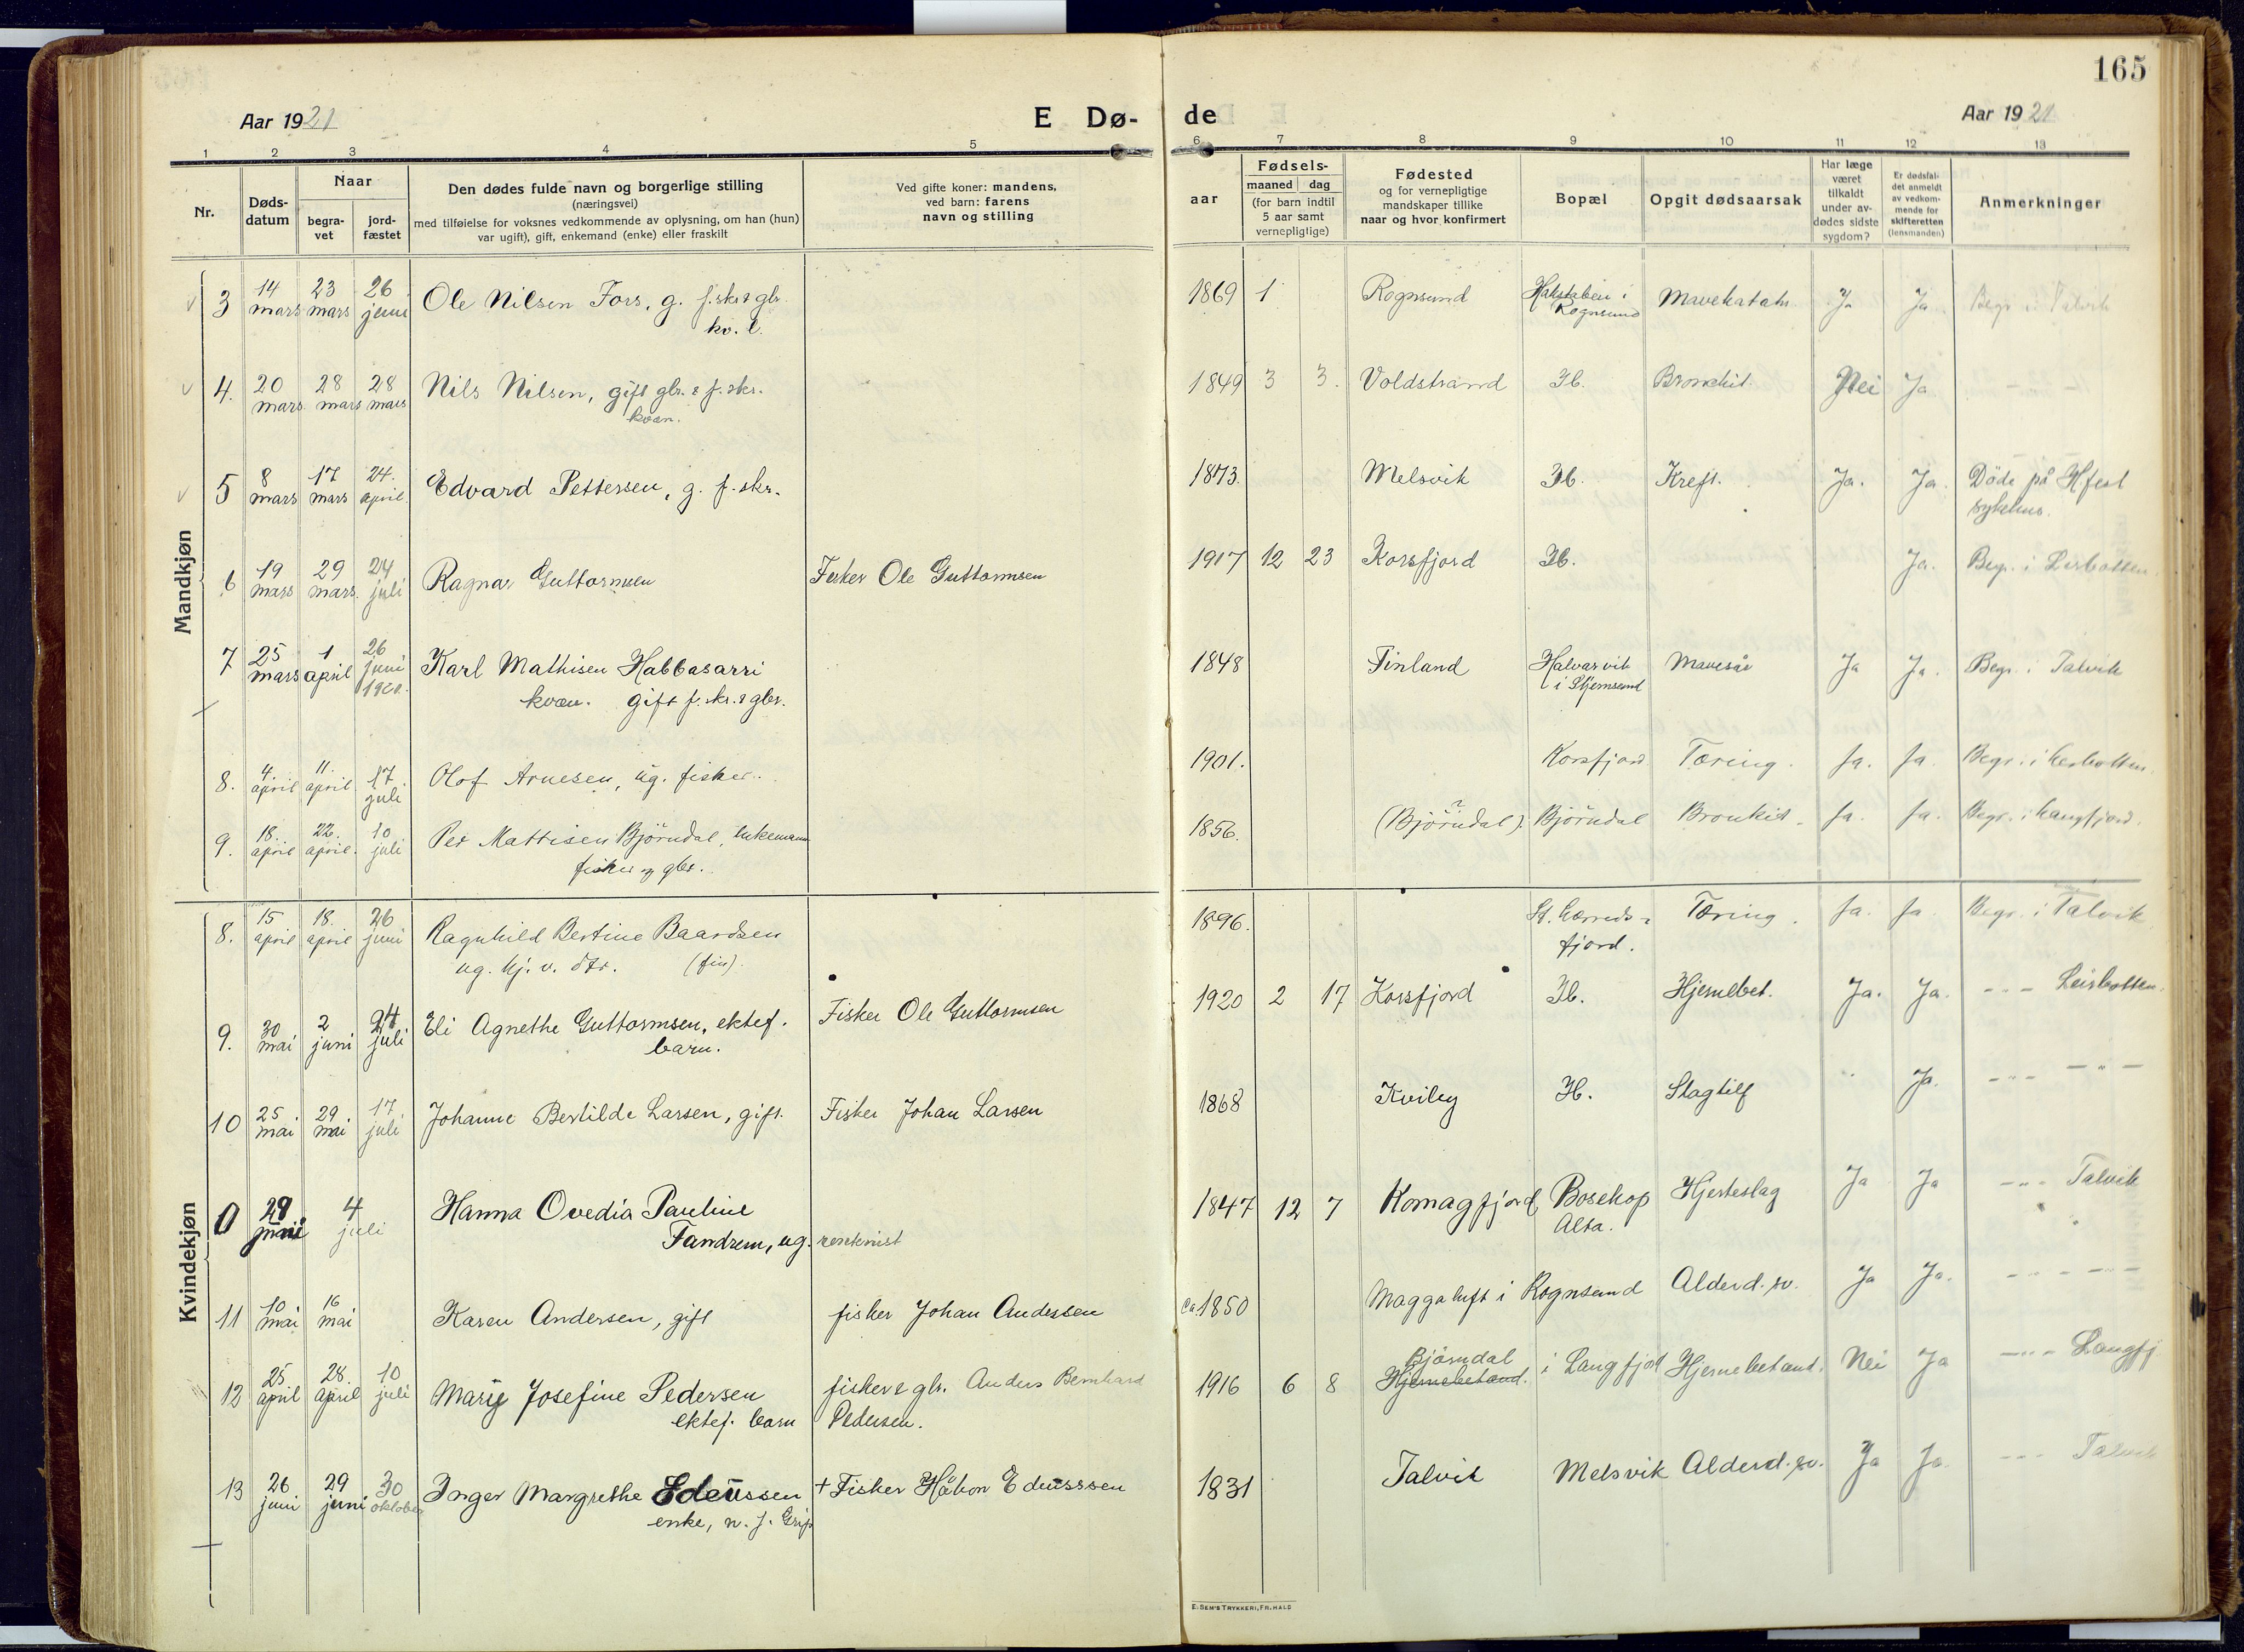 165
Aar 1921 E Dø- de Aar 1921
1 2 3 4 5 6 7 8 9 10 11 12 13
Nr.
Døds-
datum
Naar
begra-
vet
jord-
fæstet
Den dødes fulde navn og borgerlige stilling
(næringsvei)
med tilføielse for voksnes vedkommende av oplysning, om han (hun)
var ugift), gift, enkemand (enke) eller fraskilt
Ved gifte koner: mandens,
ved barn: farens
navn og stilling
Fødsels-
aar
maaned dag
(for barn indtil
5 aar samt
vernepligtige)
Fødested
og for vernepligtige
mandskaper tillike
naar og hvor konfirmert
Bopæl
Opgit dødsaarsak
Har læge
været
tilkaldt
under av-
dødes sidste
sygdom?
Er dødsfal-
det anmeldt
av vedkom-
mende for
skifteretten
(lensmanden)
Anmerkninger
Mandkjøn
3 14 mars 23 mars 26 juni Ole Nilsen Fors, g. f.skr & gbr. 1869 1 Rognsund Hakstaben i Ja Ja Begr. i Talvik
kv. l. Rognsund
4. 20 mars 28 mars 28 mars Nils Nilsen, gift gbr. & f.skr. 1849 3 3. Voldstrand Ib. Bronchit. Nei Ja - " -
kvæn.
5 8 mars 17 mars 24. april Edvard Pettersen, g. f. skr. 1873. Melsvik Ib. Kreft. Ja. Ja. Döde på Hfest
sykehus.
6 19 mars 29 mars 24 juli Ragnar Guttormsen Fisker Ole Guttormsen 1917 12 23 Korsfjord Ib. Ja. Begr. i Lerbotten
7 25 mars 1 april 26 juni 1921. Karl Mathisen Habbasarri 1848 Finland Halvarvik Mavesår Ja Ja. Begr. i Talvik
kvæn. gift f. skr. & gbr. i Stjernsund
8. 4. april 11. april 17. juli Olof Arnesen, ug. fisker. 1901. Korsfjord Tæring. Ja. Ja. Begr. i Lerbotten.
9. 18. april 22. april. 10 juli Per Mattisen Björndal, enkemann 1856. (Björndal)? Björndal Bronkit. Ja. Ja. Begr. i Langfjord.
fisker og gbr.
Kvindekjøn
8. 15 april 18. april 26 juni Ragnhild Bertine Baardsen 1896. St. Lerreds- Tæring. Ja. Ja. Begr. i Talvik
ug. hj. v. dtr. (fin). fjord.
9. 30 mai 2 juni 24 juli Eli Agnethe Guttormsen, ektef. Fisker Ole Guttormsen 1920 2 17 Korsfjord Ib. Hjernebet. Ja. Ja. - " - Leirbotten.
barn.
10 25 mai 29 mai 17 juli Johanne Bertilde Larsen, gift. Fisker Johan Larsen 1868 Ib. Slagtilf Ja. - " - - " -
0 29 4 juli Hanna Ovedia Pauline 1847 12 7 Komagfjord, Bosekop Hjerteslag Ja Ja - " - Talvik
Tandrem, ug. rentenist Alta.
11 10 mai 16 mai Karen Andersen, gift fisker Johan Andersen ca 1850 i Rognsund Alderd.sv. Ja Ja. - " - - " -
12 25 april 28. april 10 juli Marie Josefine Pedersen fisker & gbr. Anders Bernhard 1916 6 8 Björndal Hjernebetænd. i Langfjord Hjernebetænd. Nei Ja - " - Langfj.
ektef. barn Pedersen.
13 26 juni 29 juni 30 oktober Inger Margrethe Edeussen + Fisker Håkon Edeussen 1831 Talvik Melsvik Alderd.sv. Ja Ja - " - Talvik
enke, n. f. Grip
E. SEM'S TRYKKERI, FR.HALD